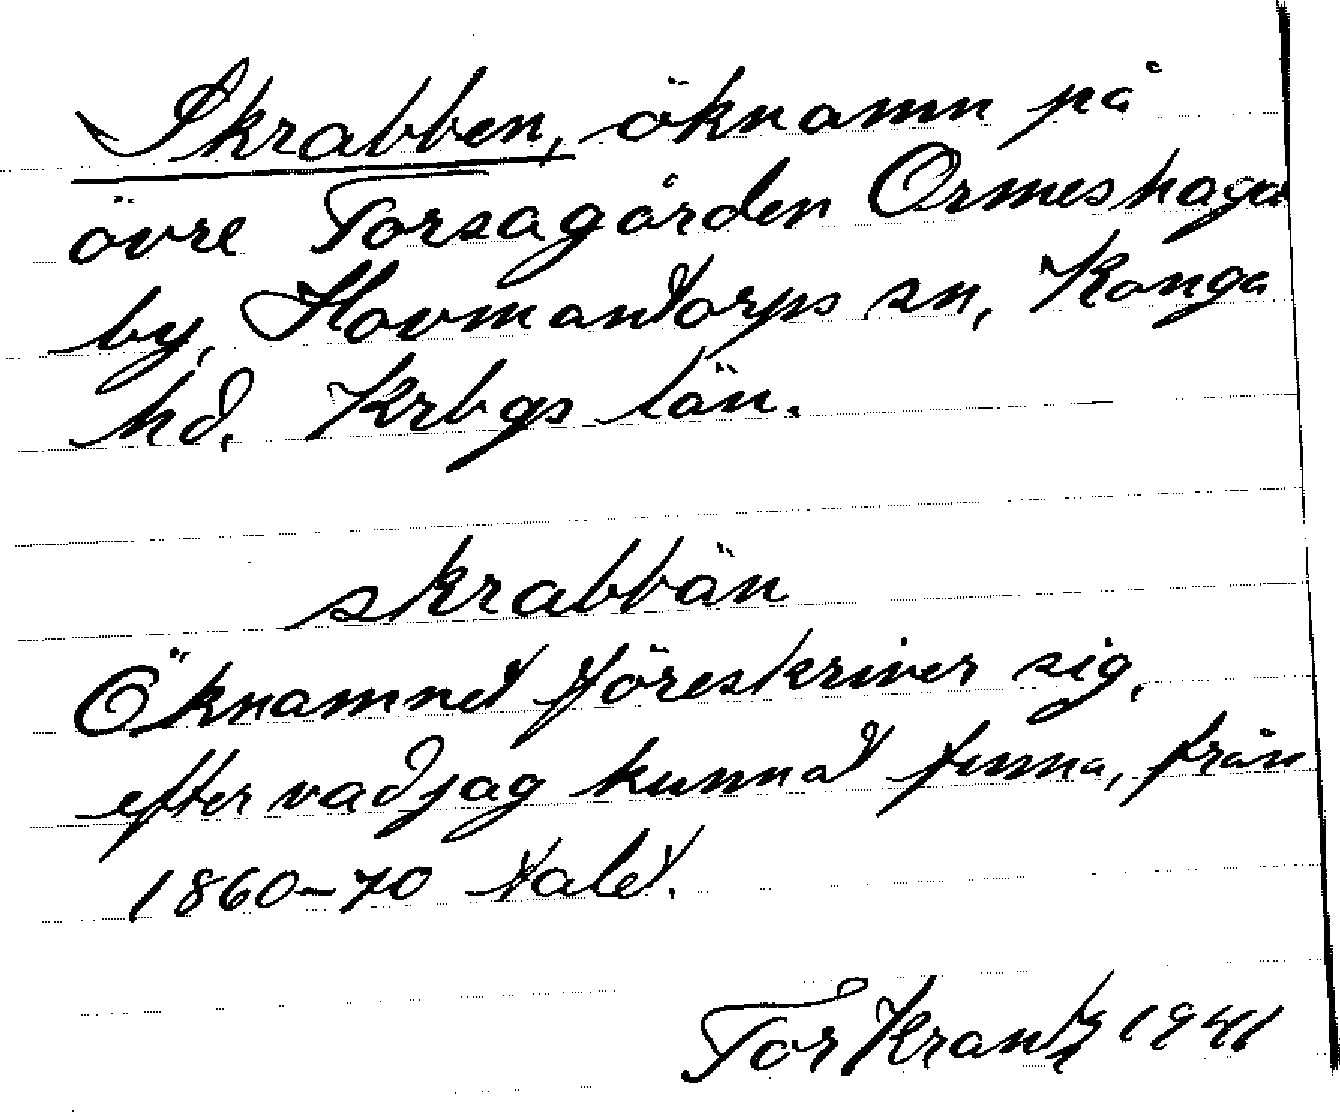 Skrabben, öknamn på
övre Torsagården Ormeshaga
by, Hovmantorps sn, Konga
hd. Krbgs län.
skrabbän
Öknamnet föreskriver sig,
efter vad jag kunnat finna, från
1860-70 talet.
Tor Krantz 1941